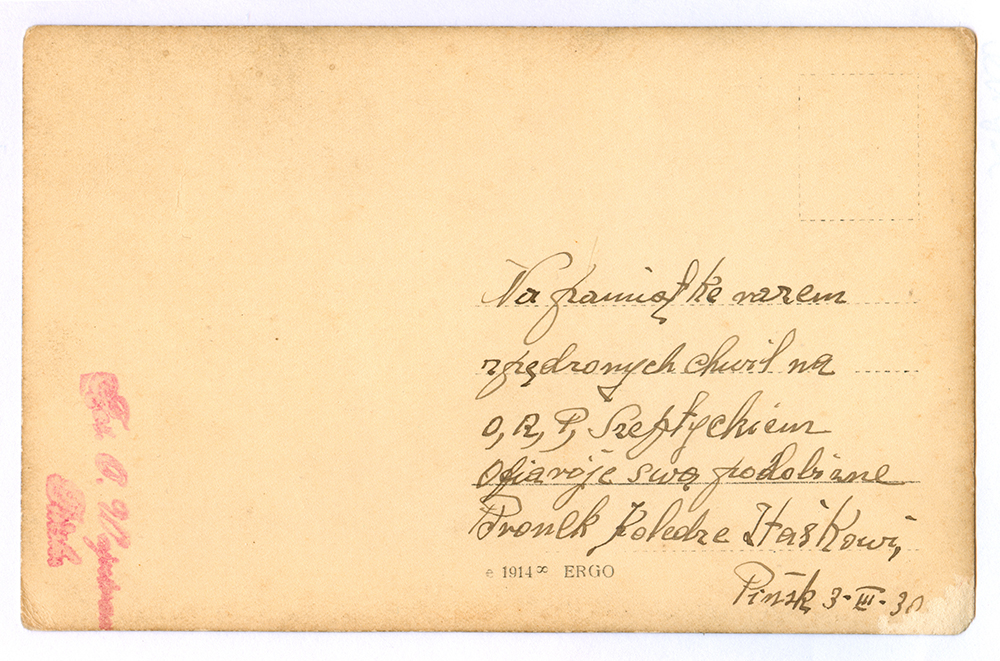 Na pamiątkę razem
spędzonych chwil na
O, R, P, Szeptyckiem
Ofiaroje swą podobiznę
Bronek koledze Staśkowi,
Pińsk 3-III-30
1914 ERGO